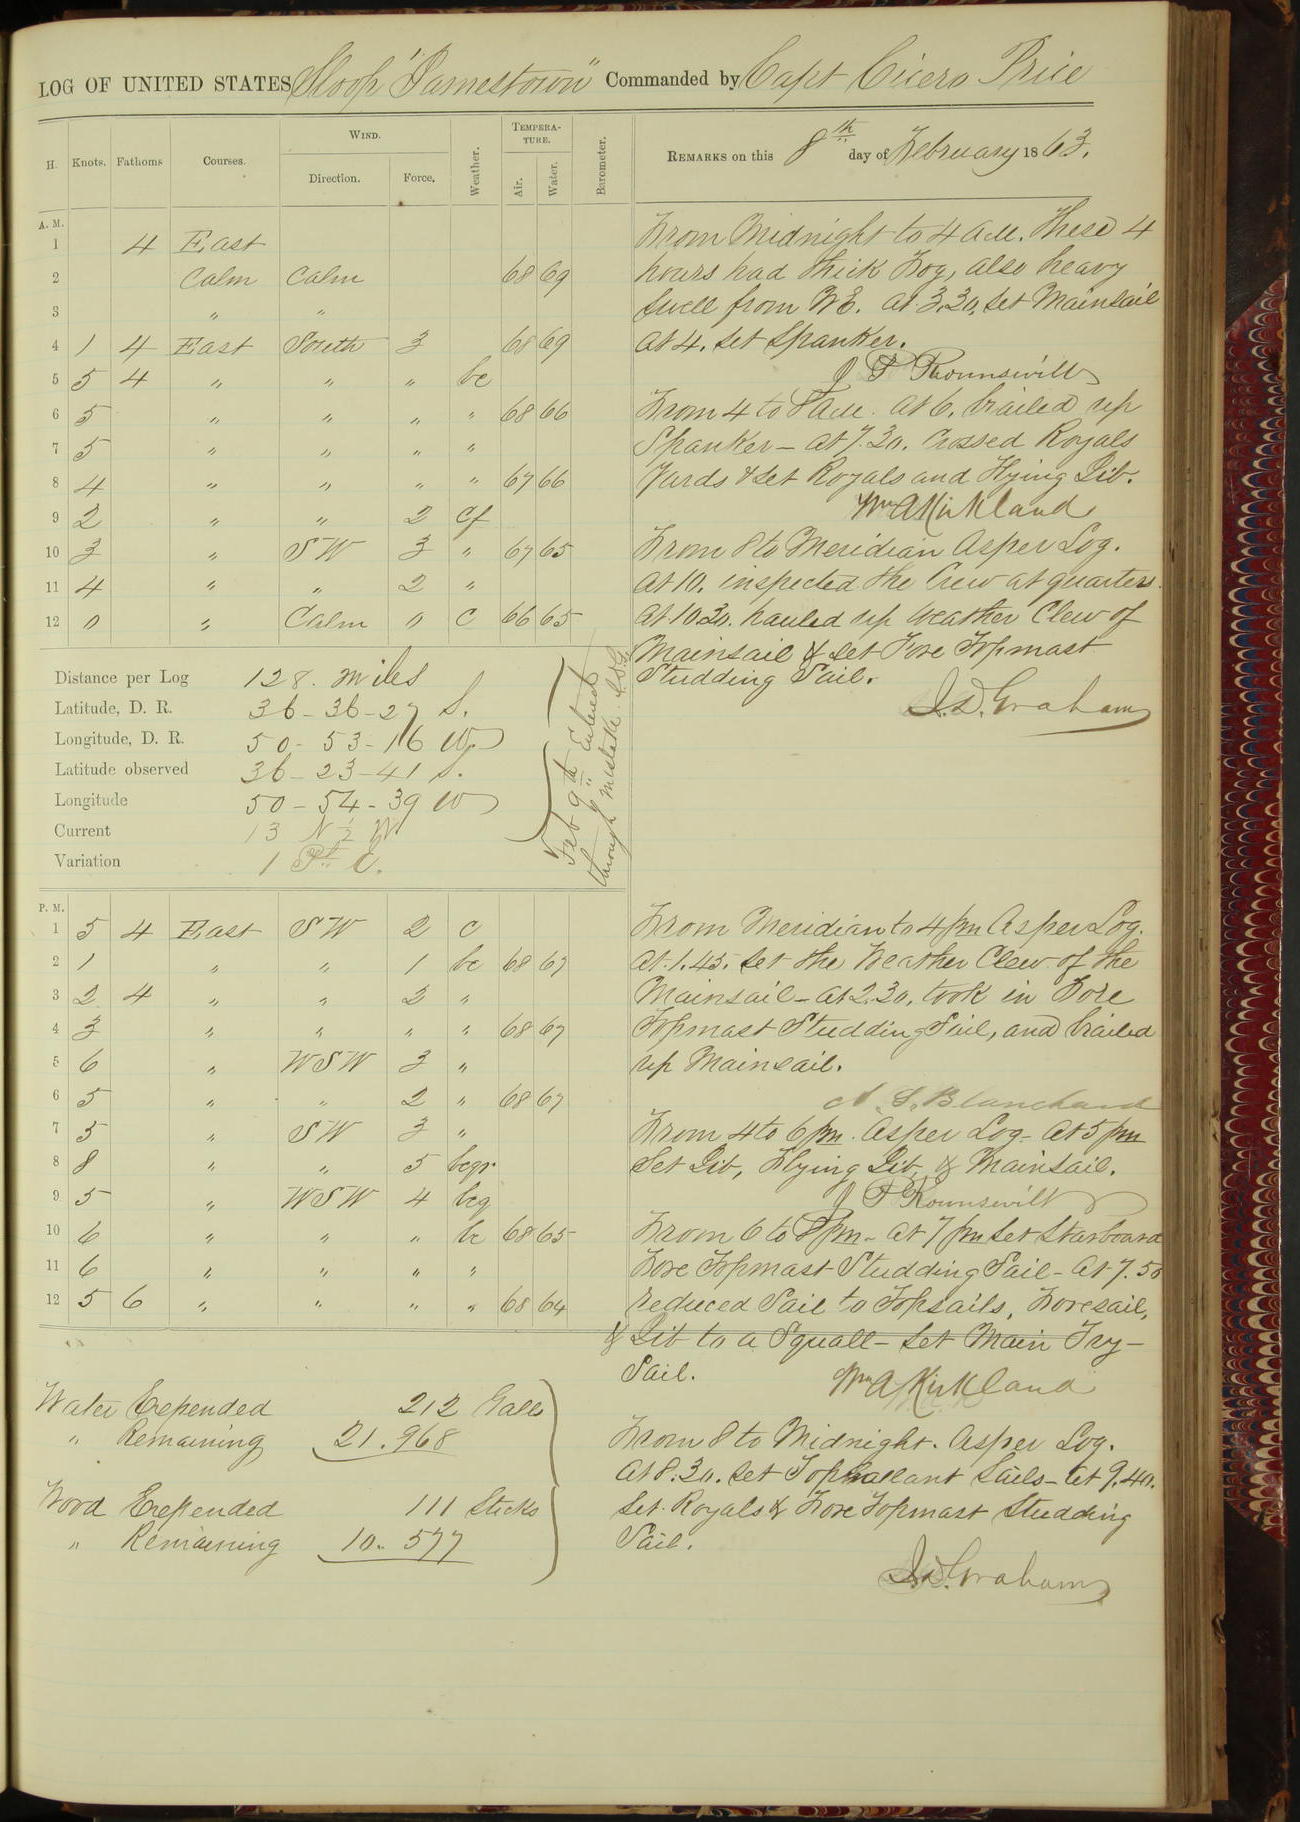 LOG OF UNITED STATES Sloop "Jamestown" Commanded by Capt Cicero Price
H. Knots. Fathoms Courses. WIND. Direction. Force. Weather. TEMPERATURE. Air. Water. Barometer. REMARKS on this 8th day of February 1863.
A. M.
1 4 East
2 Calm Calm 68 69
3 " "
4 1 4 East South 3 68 69
5 5 4 " " " bc
6 5 " " " " 68 66
7 5 " " " "
8 4 " " " " 67 66
9 2 " " 2 cf
10 3 " SW 3 " 67 65
11 4 " " 2 "
12 0 " Calm 0 c 66 65
From Midnight to 4 AM. These 4
hours had thick Fog, also heavy
swell from NE. At 3.30, set Mainsail
At 4. set Spanker.
From 4 to 8 AM. At 6. brailed up
Spanker – At 7.30. Crossed Royals
Yards & set Royals and Flying Jib.
Wm A Kirkland
From 8 to Meridian As per Log.
At 10. inspected the Crew at quarters.
At 10.30. hauled up weather Clew of
Mainsail & set Fore Topmast
Studding Sail.
J. D. Graham
Distance per Log 128. miles
Latitude, D. R. 36 – 36 – 27 S.
Longitude, D. R. 50 – 53 – 16 W
Latitude observed 36 – 23 – 41 S.
Longitude 50 – 54 – 39 W
Current 13 N ½ W
Variation 1 Pt E.
Feb 9th Entered
through mistake
P. M.
1 5 4 East SW 2 c
2 1 " " 1 bc 68 67
3 2 4 " " 2 "
4 3 " " " " 68 67
5 6 " WSW 3 "
6 5 " " 2 " 68 67
7 5 " SW 3 "
8 8 " " 5 bcqr
9 5 " WSW 4 bcq
10 6 " " " bc 68 65
11 6 " " " "
12 5 6 " " " " 68 64
From Meridian to 4 pm As per Log.
At 1.45. set the Weather Clew of the
Mainsail – At 2.30, took in Fore
Topmast Studding Sail, and brailed
up Mainsail.
Blanchard
From 4 to 6 pm. As per Log – At 5 pm
Set Jib, Flying Jib, & Mainsail.
From 6 to 8 pm – At 7 pm Set Starboard
Fore Topmast Studding Sail – At 7.50
reduced Sail to Topsails, Foresail,
& Jib to a Squall – Set Main Try-
Sail.
Wm A Kirkland
From 8 to Midnight. As per Log.
At 8.30. set Topgallant Sails – At 9.40.
Set Royals & Fore Topmast Studding
Sail.
J. D. Graham
Water Expended 212 Galls
" Remaining 21.968
Wood Expended 111 Sticks
" Remaining 10.577